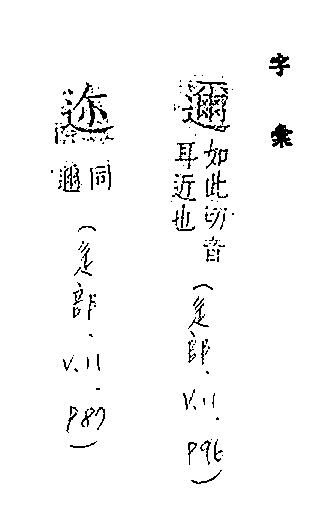 字彙
邇
如此切音
耳近也
(辵部.V.11.P96)
迩
同
邇
(辵部.V.11.P87)